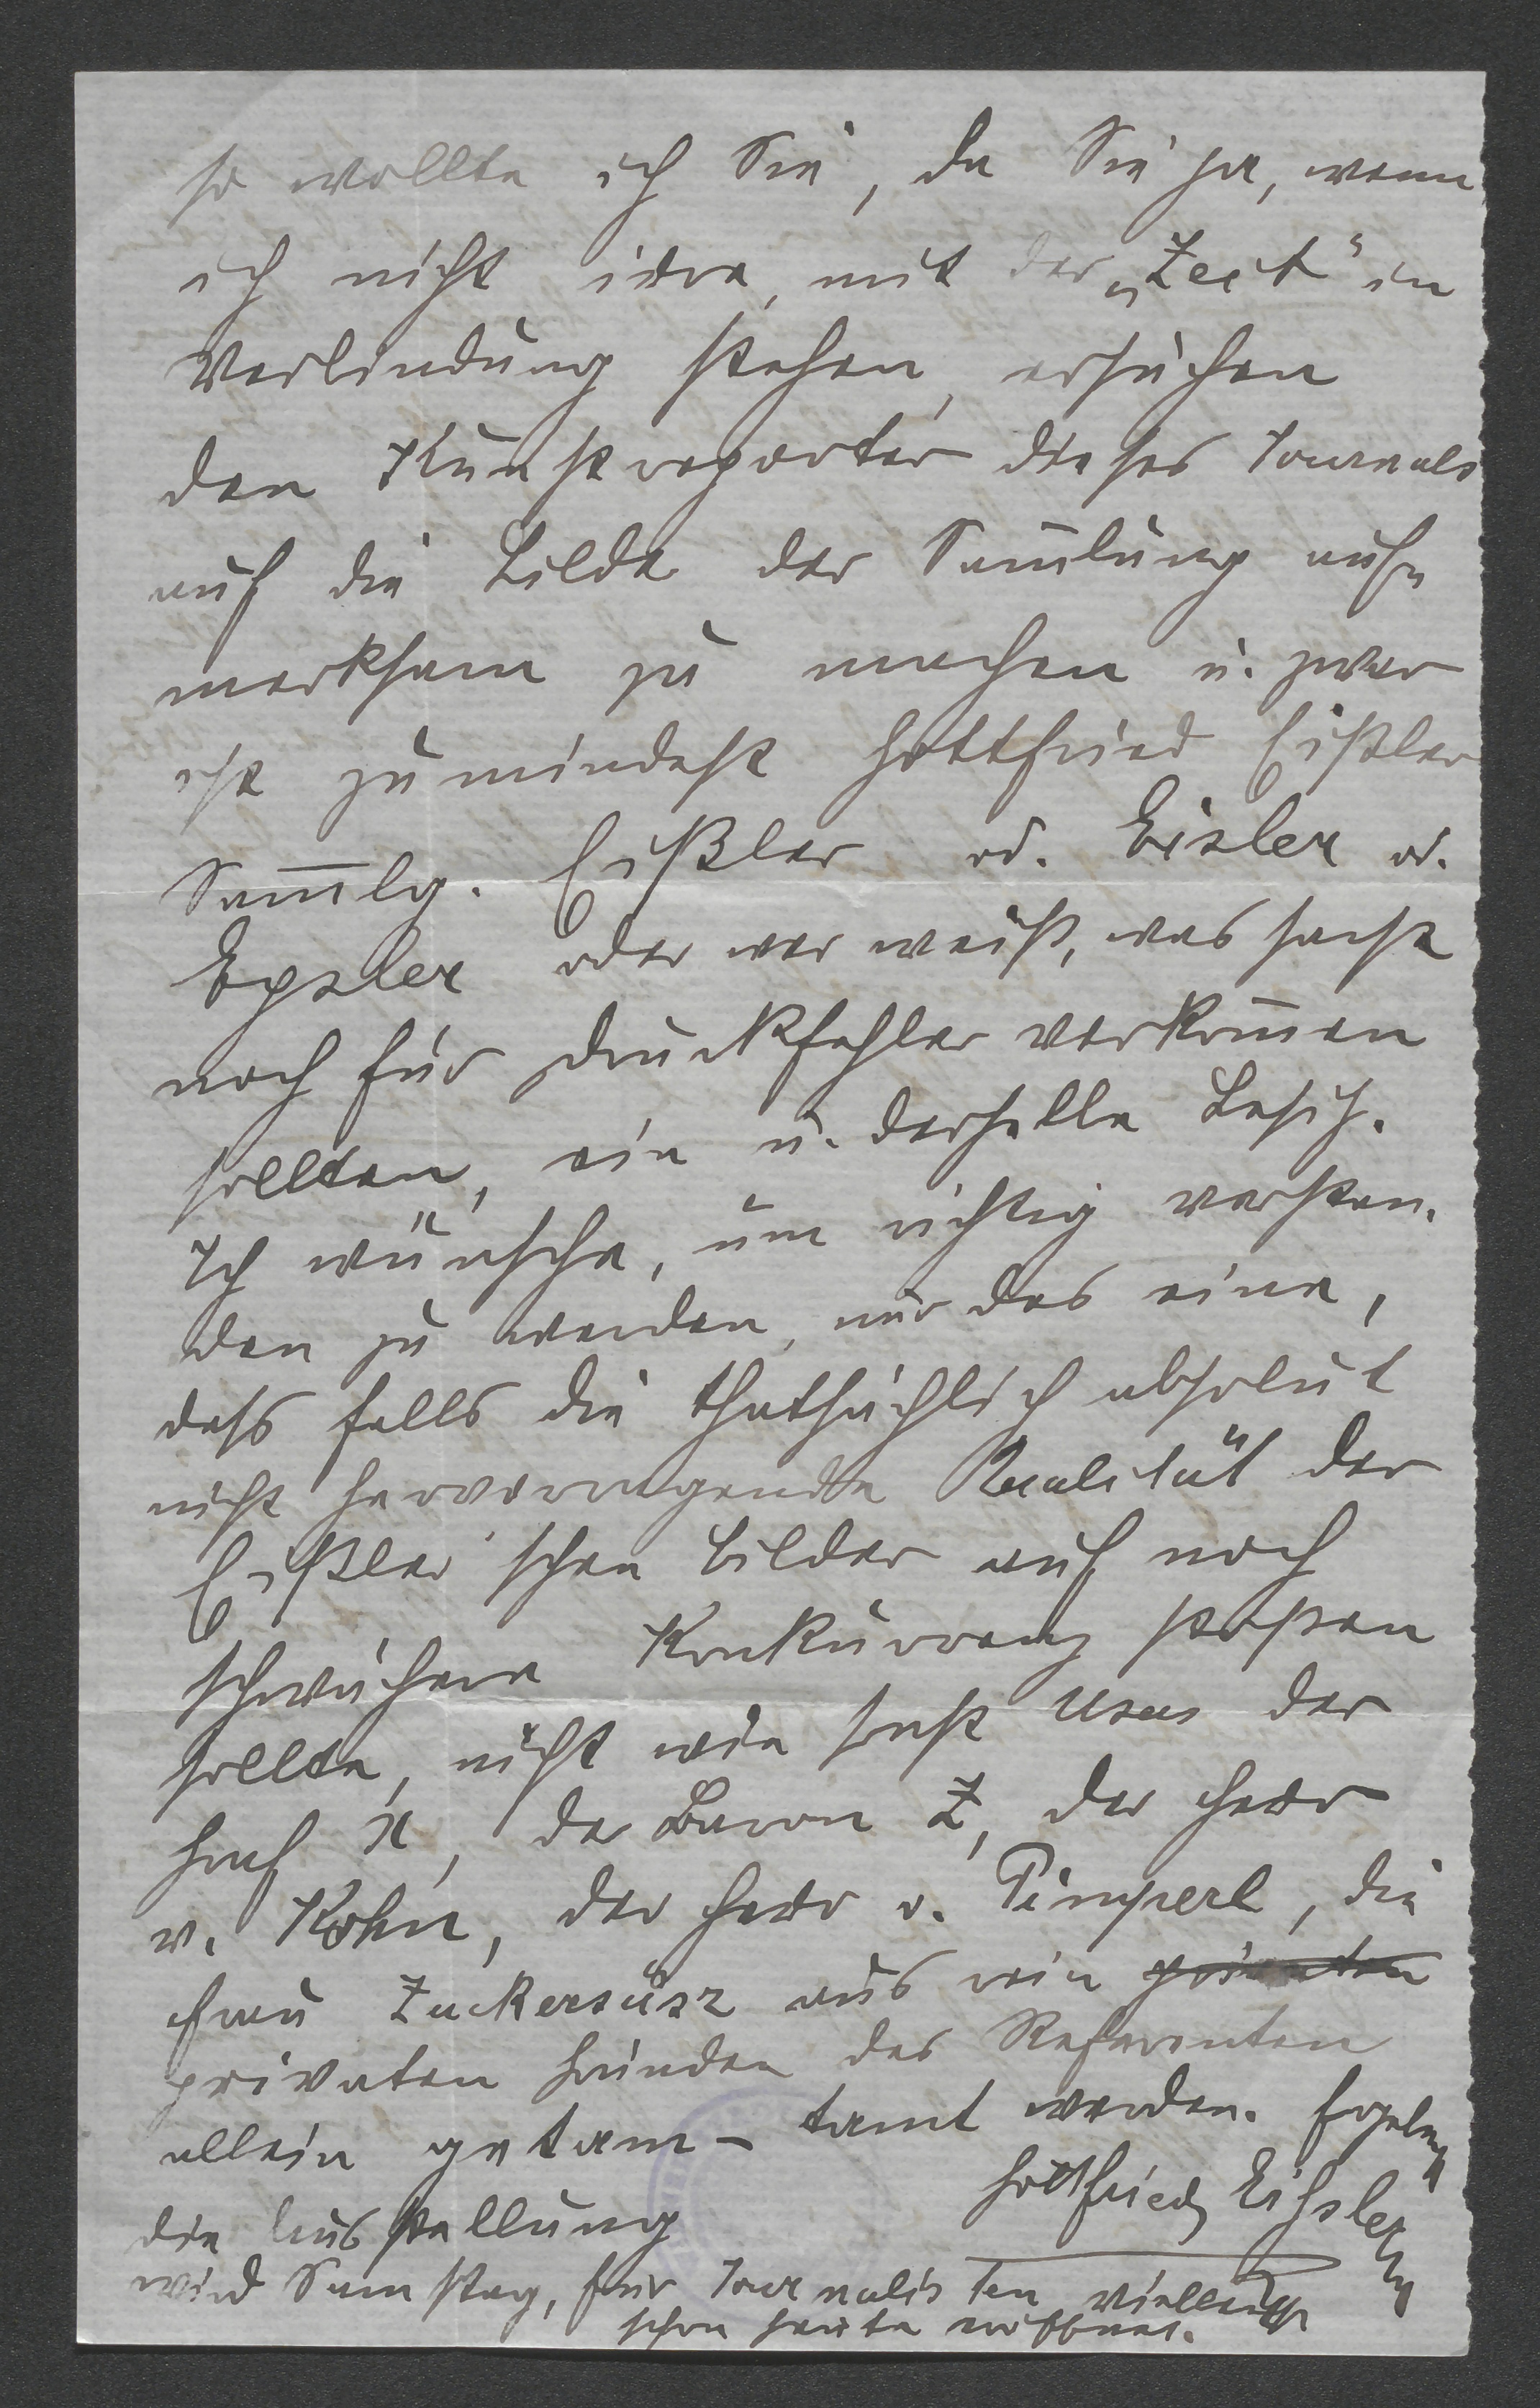 so wollte ich Sie, da Sie ja, wenn
ich nicht irre, mit der „Zeit" in
Verbindung stehen, ersuchen
den Kunstreporter dieses Journals
auf die Bilder der Sam̅lung auf„
merksam zu machen u. zwar
ist zumindest Gottfried Eißler
Sam̅lg. Eißler od. Eisler od.
Eysler oder wer weiß, was sonst
noch für Druckfehler vorkom̅en
sollten, ein u. derselbe Besitz.
Ich wünsche, um richtig verstan„
den zu werden, nur das eine,
dass falls die thatsächlich absolut
nicht hervorragende Qualität der
Eißler'schen Bilder auf noch
schwächere Konkurrenz stoßen
sollte, nicht wie sonst Usus der
Graf X, der Baron Z, der Herr
v. Kohn, der Herr v. Pimperl, die
Frau Zuckersüsz aus rein privaten
privaten Gründen des Referenten
allein getam-tamt werden. Ergebenst
Gottfried Eissler
Die Ausstellung
wird Samstag, für Journalisten vielleicht
schon heute eröffnet.